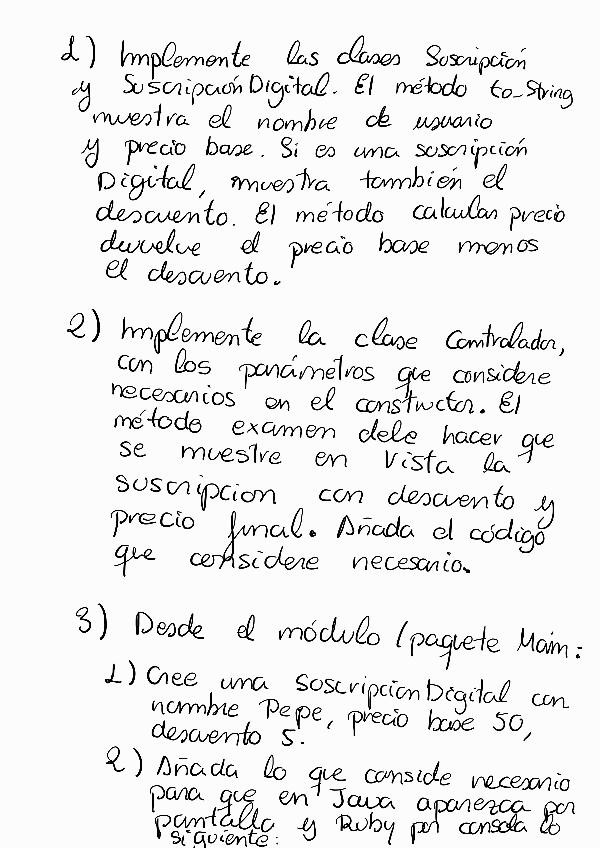 1) Implemente las clases Suscripción
y SuscripciónDigital. El método to_String
muestra el nombre de usuario
y precio base. Si es una suscripción
Digital, muestra también el
descuento. El método calcular precio
devuelve el precio base menos
el descuento.
2) Implemente la clase Controlador,
con los parámetros que considere
necesarios en el constructor. El
método examen debe hacer que
se muestre en Vista la
suscripcion con descuento y
precio final. Añada el código
que considere necesario.
3) Desde el módulo /paquete Main:
1) Cree una suscripcionDigital con
nombre Pepe, precio base 50,
descuento 5.
2) Añada lo que conside necesario
para que en Java aparezca por
pantalla y Ruby por consola lo
siguiente: